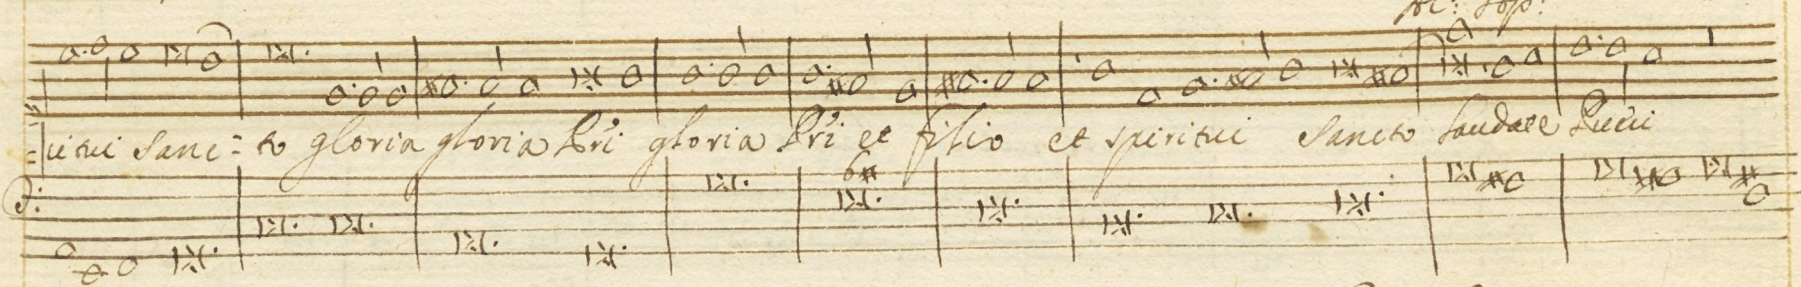 Sop:
uitui Sanc=to gloria gloria Pri gloria Pri et filio et spiritui Sancto laudate Pueri
6#